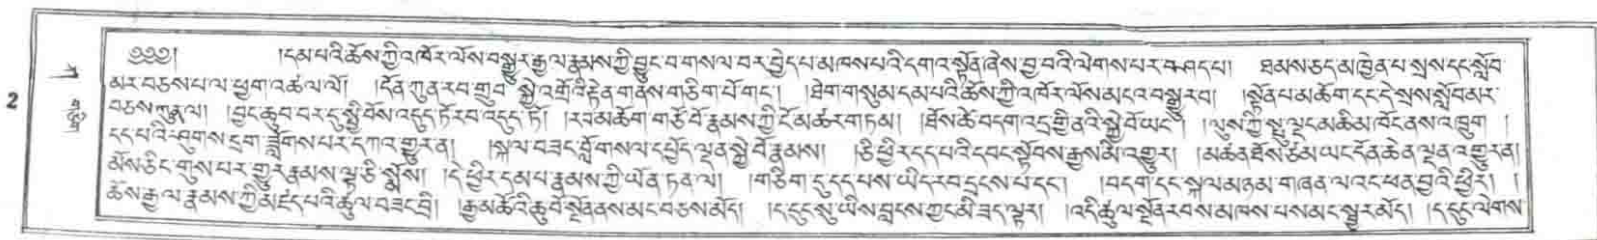 ༄༅༅། །དམ་པའི་ཆོས་ཀྱི་འཁོར་ལོས་བསྒྱུར་རྒྱལ་རྣམས་ཀྱི་བྱུང་བ་གསལ་བར་བྱེད་པ་མཁས་པའི་དགའ་སྟོན་ཞེས་བྱ་བའི་ལེགས་པར་བཤད་པ། ཐམས་ཅད་མཁྱེན་པ་སྲས་དང་སློབ་
མར་བཅས་པ་ལ་ཕྱག་འཚལ་ལོ། །དོན་ཀུན་རབ་གྲུབ་སྐྱེ་འགྲོའི་རྟེན་གནས་གཅིག་པོ་གང་། །ཐེག་གསུམ་དམ་པའི་ཆོས་ཀྱི་འཁོར་ལོས་མངའ་བསྒྱུར་བ། །སྟོན་པ་མཆོག་དང་དེ་སྲས་སློབ་མར་
བཅས་ཀུན་ལ། །བྱང་ཆུབ་བར་དུ་སྤྱི་བོས་འདུད་ཏོ་རབ་འདུད་ཏོ། །རབ་མཆོག་གཙོ་བོ་རྣམས་ཀྱི་ངོ་མཚར་གཏམ། །ཐོས་ཚེ་བདག་འདྲ་གྱི་ནའི་སྐྱེ་བོ་ཡང་། །ལུས་ཀྱི་སྤུ་ལྡང་མཆི་མ་ཁོང་ནས་འཁྲུག །
དད་པའི་ཤུགས་དྲག་ཟློག་པར་དཀའ་གྱུར་ན། །སྐལ་བཟང་བློ་གསལ་དཔྱོད་ལྡན་སྐྱེ་བོ་རྣམས། །ཅི་ཕྱིར་དད་པའི་དབང་སྟོབས་རྒྱས་མི་འགྱུར། །མཚན་ཐོས་ཙམ་ཡང་དོན་ཆེན་ལྡན་འགྱུར་ན།
མོས་ཅིང་གུས་པར་གྱུར་རྣམས་ལྟ་ཅི་སྨོས། །དེ་ཕྱིར་དམ་པ་རྣམས་ཀྱི་ཡོན་ཏན་ལ། །གཅིག་ཏུ་དད་པས་ཡིད་རབ་དྲངས་པ་དང་། །བདག་དང་སྐལ་མཉམ་གཞན་ལའང་ཕན་བྱའི་ཕྱིར། །
ཆོས་རྒྱལ་རྣམས་ཀྱི་མཛད་པའི་ཚུལ་བཟང་བྲི། །རྒྱ་མཚོའི་ཆུ་བོ་སྔོན་ནས་མང་བཅས་མོད། །ད་དུང་སུ་ཡིས་བླངས་ཀྱང་མི་ཟད་ལྟར། །འདི་ཚུལ་སྔོན་རབས་མཁས་པས་མང་སྦྱར་མོད། །ད་དུང་ལེགས་
2